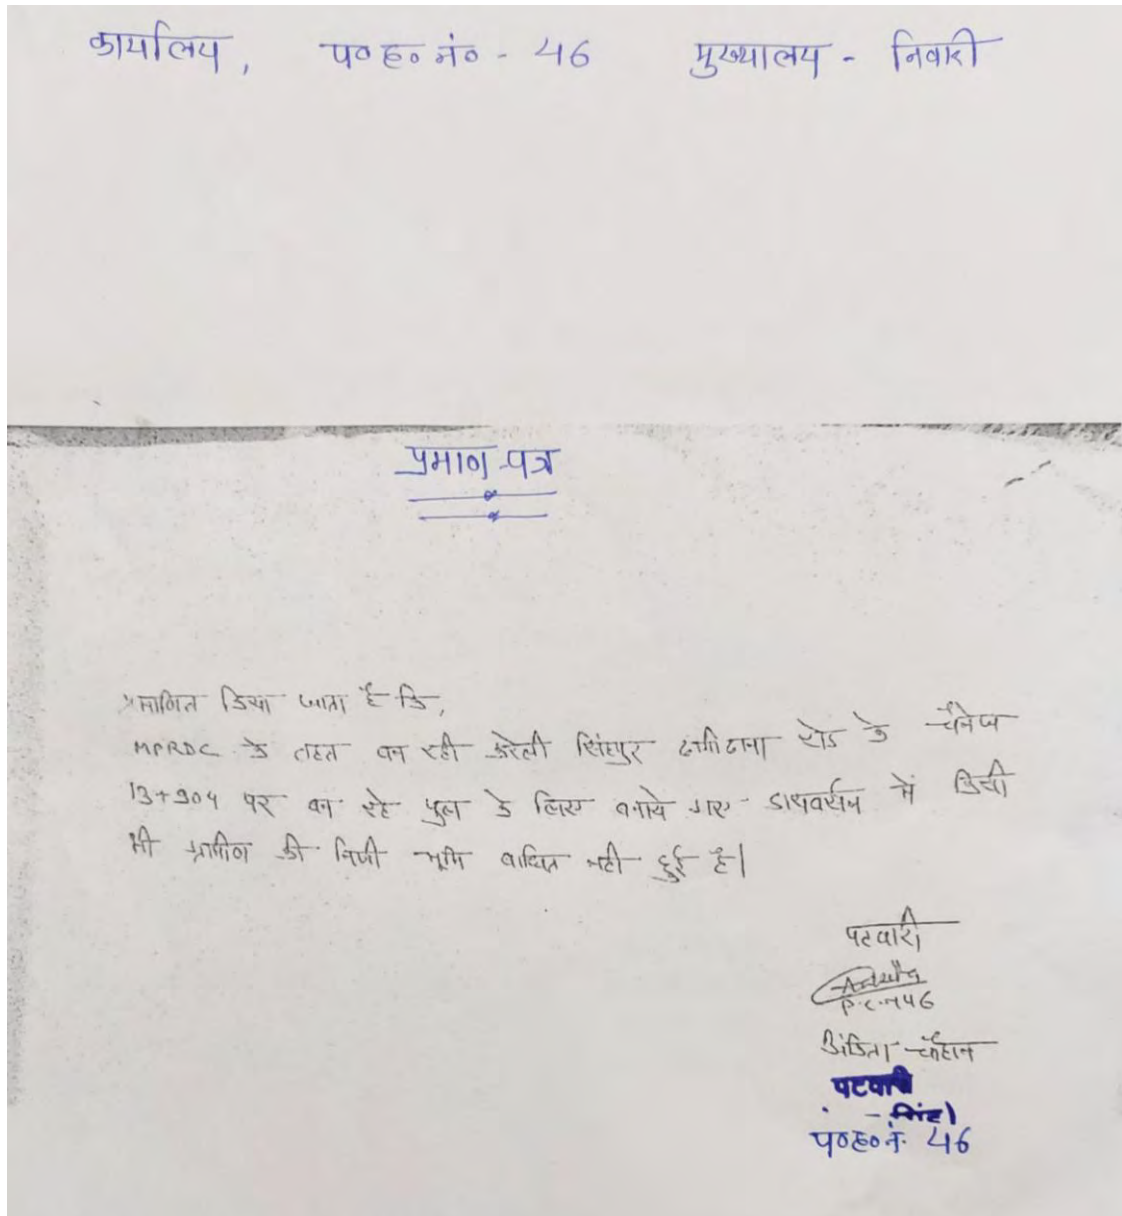 कार्यालय, प०ह०नं० - 46 मुख्यालय - निवारी
प्रमाण-पत्र
प्रमाणित किया जाता है कि,
MPRDC के तहत बन रही करेली सिंहपुर डांगीढाना रोड के चैनेज
13+904 पर बन रहे पुल के लिए बनाये गए डायवर्सन में किसी
भी ग्रामीण की निजी भूमि बाधित नही हुई है।
पटवारी
P.C.N 46
अंकिता चौहान
पटवारी
प०ह०नं. 46